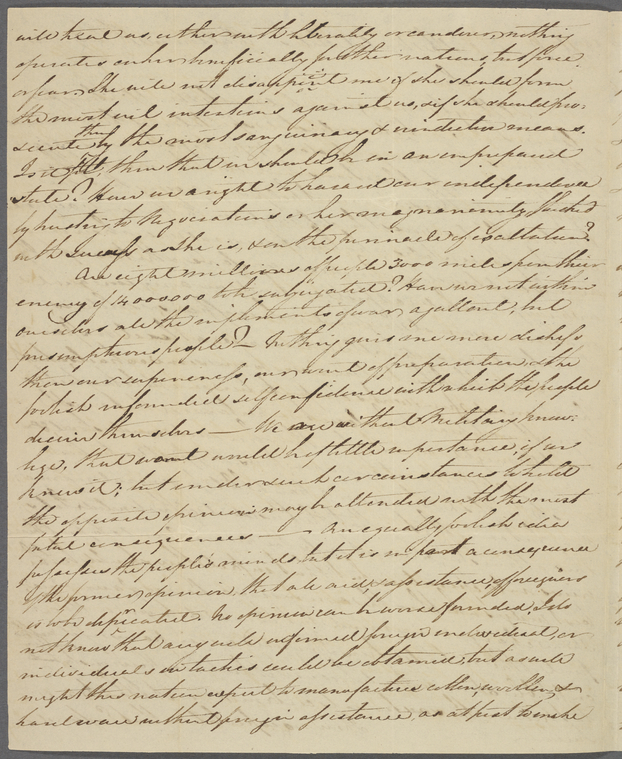 will treat us, either with liberality or candour, nothing
operates on her beneficially for other nations, but force
or fear. She will not disappoint me if she should form
the most evil intentions against us, & if she should pro-
secute them by the most sanguinary & vindictive means.
Is it fit, then that we should be in an unprepared
state? Have we a right to hazard our independence
by trusting to Negociations or her magnanimity flushed
with success as she is, & on the pinnacle of exaltation?
Are eight millions of people 3000 miles from their
enemy of 14000000 to be subjugated? Have we not within
ourselves all the impliments of war, a gallant, but
presumptuous people? — Nothing gives me more distress,
than our supineness, our want of preparation, & the
foolish unfounded self confidence with which the people
deceive themselves — We are without Military know-
lege, that want would be of little importance, if we
knew it; but under such circumstances to hold
the opposite opinion may be attended with the most
fatal consequences — An equally foolish idea
possesses the people's minds, but it is in part a consequence
of the former opinion, that all aid & assistance of foreigners
is to be deprecated. No opinion can be worse founded, I do
not know that any well informed foreign individual, or
individuals in tactics could be obtained, but as well
might this nation expect to manufacture cotton, woollen, &
hard ware without foreign assistance, as at first to make